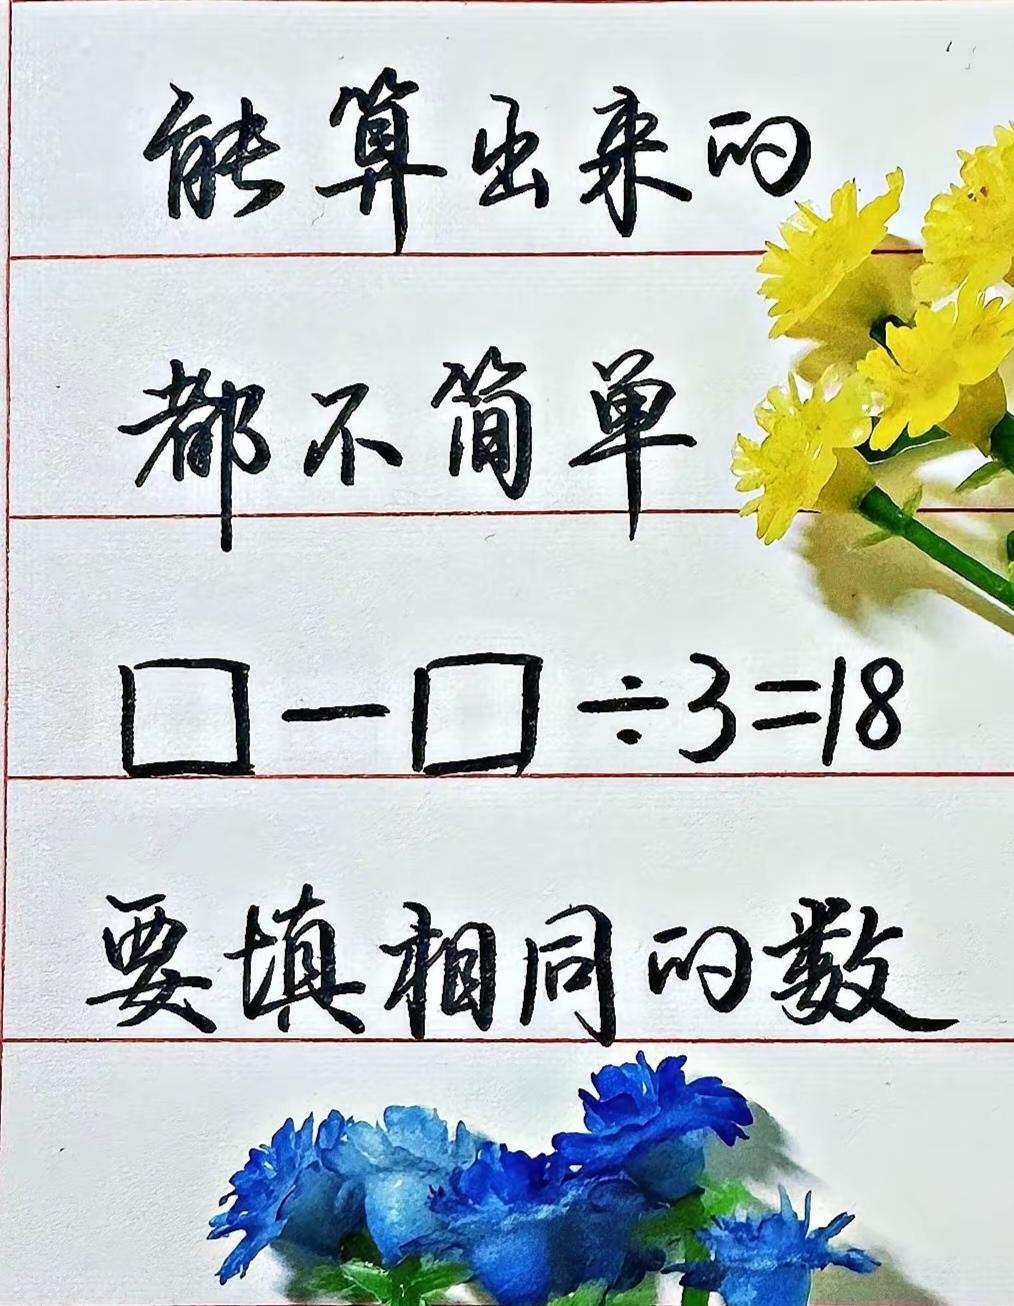 能算出来的
都不简单
□－□÷3=18
要填相同的数